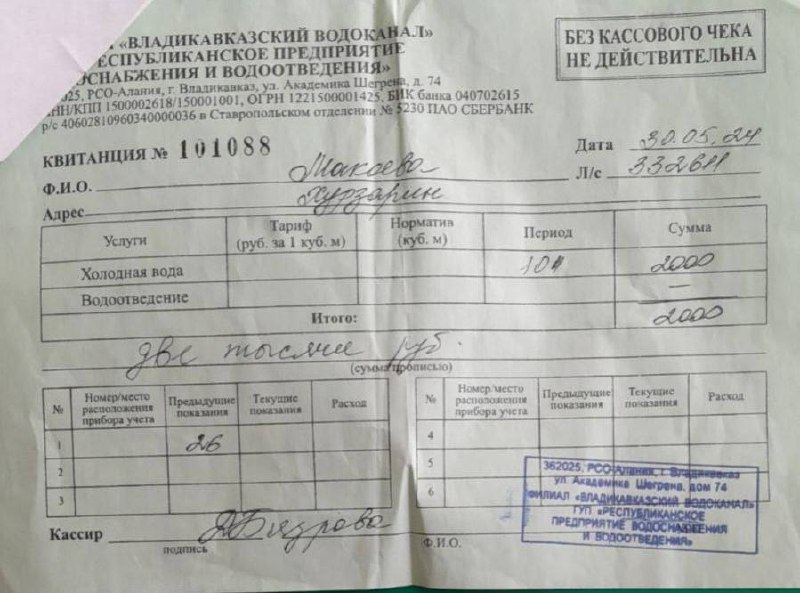 «ВЛАДИКАВКАЗСКИЙ ВОДОКАНАЛ»
РЕСПУБЛИКАНСКОЕ ПРЕДПРИЯТИЕ
ОСНАБЖЕНИЯ И ВОДООТВЕДЕНИЯ»
025, РСО-Алания, г. Владикавказ, ул. Академика Шегрена, д. 74
ИНН/КПП 1500002618/150001001, ОГРН 1221500001425, БИК банка 040702615
р/с 40602810960340000036 в Ставропольском отделении № 5230 ПАО СБЕРБАНК
БЕЗ КАССОВОГО ЧЕКА
НЕ ДЕЙСТВИТЕЛЬНА
КВИТАНЦИЯ № 101088
Дата 30.05.24
Ф.И.О. Макоева
Л/с 332611
Адрес Хурзарин
Услуги Тариф (руб. за 1 куб. м) Норматив (куб. м) Период Сумма
Холодная вода 2000
Водоотведение —
Итого: 2000
две тысячи руб.
(сумма прописью)
№ Номер/место расположения прибора учета Предыдущие показания Текущие показания Расход
1 26
2
3
№ Номер/место расположения прибора учета Предыдущие показания Текущие показания Расход
4
5
6
362025, РСО-Алания, г. Владикавказ
ул. Академика Шегрена, дом 74
ФИЛИАЛ «ВЛАДИКАВКАЗСКИЙ ВОДОКАНАЛ»
ГУП «РЕСПУБЛИКАНСКОЕ
ПРЕДПРИЯТИЕ ВОДОСНАБЖЕНИЯ
И ВОДООТВЕДЕНИЯ»
Кассир
подпись
Ф.И.О.